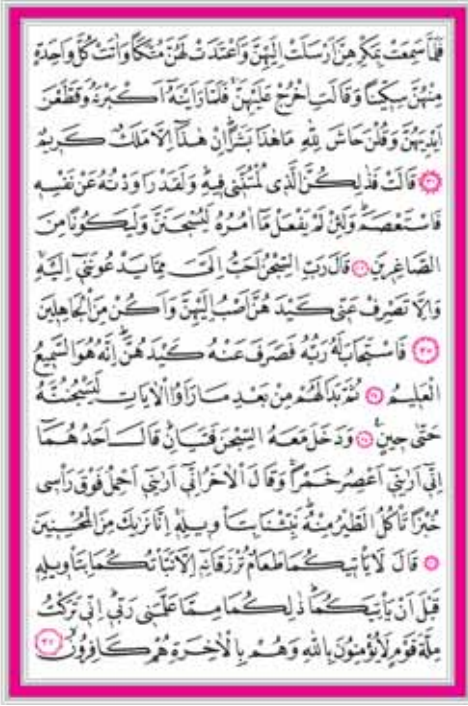 فَلَمَّا سَمِعَتْ بِمَكْرِهِنَّ اَرْسَلَتْ اِلَيْهِنَّ وَاَعْتَدَتْ لَهُنَّ مُتَّكَـًٔا وَاٰتَتْ كُلَّ وَاحِدَةٍ
مِنْهُنَّ سِكّ۪ينًا وَقَالَتِ اخْرُجْ عَلَيْهِنَّ فَلَمَّا رَاَيْنَهُٓ اَكْبَرْنَهُ وَقَطَّعْنَ
اَيْدِيَهُنَّ وَقُلْنَ حَاشَ لِلّٰهِ مَا هٰذَا بَشَرًا اِنْ هٰذَٓا اِلَّا مَلَكٌ كَر۪يمٌ
﴿٣١﴾ قَالَتْ فَذٰلِكُنَّ الَّذ۪ي لُمْتُنَّن۪ي ف۪يهِ وَلَقَدْ رَاوَدْتُهُ عَنْ نَفْسِه۪
فَاسْتَعْصَمَ وَلَئِنْ لَمْ يَفْعَلْ مَٓا اٰمُرُهُ لَيُسْجَنَنَّ وَلَيَكُونًا مِنَ
الصَّاغِر۪ينَ ﴿٣٢﴾ قَالَ رَبِّ السِّجْنُ اَحَبُّ اِلَيَّ مِمَّا يَدْعُونَن۪ٓي اِلَيْهِ
وَاِلَّا تَصْرِفْ عَنّ۪ي كَيْدَهُنَّ اَصْبُ اِلَيْهِنَّ وَاَكُنْ مِنَ الْجَاهِل۪ينَ
﴿٣٣﴾ فَاسْتَجَابَ لَهُ رَبُّهُ فَصَرَفَ عَنْهُ كَيْدَهُنَّ اِنَّهُ هُوَ السَّم۪يعُ
الْعَل۪يمُ ﴿٣٤﴾ ثُمَّ بَدَا لَهُمْ مِنْ بَعْدِ مَا رَاَوُا الْاٰيَاتِ لَيَسْجُنُنَّهُ
حَتّٰى ح۪ينٍ ﴿٣٥﴾ وَدَخَلَ مَعَهُ السِّجْنَ فَتَيَانِ قَالَ اَحَدُهُمَٓا
اِنّ۪ٓي اَرٰين۪ٓي اَعْصِرُ خَمْرًا وَقَالَ الْاٰخَرُ اِنّ۪ٓي اَرٰين۪ٓي اَحْمِلُ فَوْقَ رَأْس۪ي
خُبْزًا تَأْكُلُ الطَّيْرُ مِنْهُ نَبِّئْنَا بِتَأْو۪يلِه۪ اِنَّا نَرٰيكَ مِنَ الْمُحْسِن۪ينَ
﴿٣٦﴾ قَالَ لَا يَأْت۪يكُمَا طَعَامٌ تُرْزَقَانِه۪ٓ اِلَّا نَبَّأْتُكُمَا بِتَأْو۪يلِه۪
قَبْلَ اَنْ يَأْتِيَكُمَا ذٰلِكُمَا مِمَّا عَلَّمَن۪ي رَبّ۪ي اِنّ۪ي تَرَكْتُ
مِلَّةَ قَوْمٍ لَا يُؤْمِنُونَ بِاللّٰهِ وَهُمْ بِالْاٰخِرَةِ هُمْ كَافِرُونَ ﴿٣٧﴾